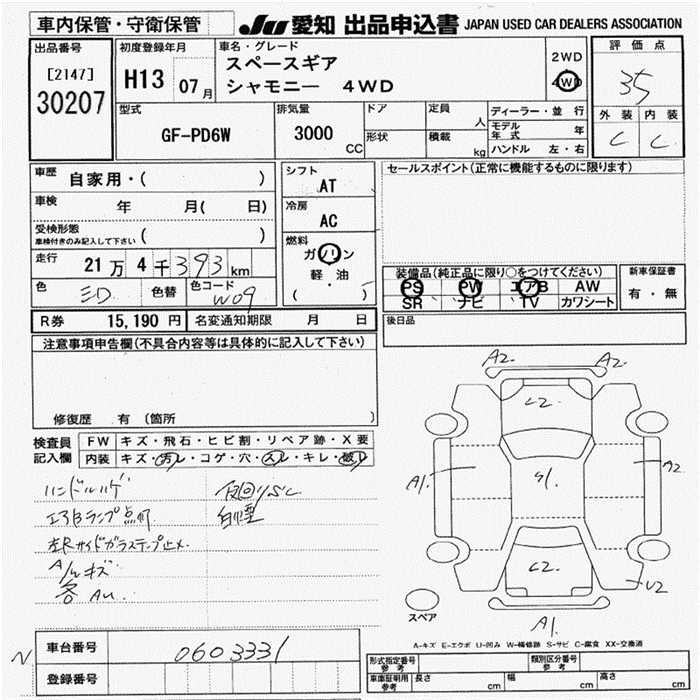 車内保管・守衛保管
JU 愛知 出品申込書 JAPAN USED CAR DEALERS ASSOCIATION
出品番号
[2147]
30207
初度登録年月
H13 07月
車名・グレード
スペースギア
シャモニー 4WD
2WD
4WD
評価点
35
外装 内装
C C
型式
GF-PD6W
排気量
3000 CC
ドア
形状
定員 人
積載 kg
ディーラー・並行
モデル年式 年
ハンドル 左・右
車歴 自家用・( )
車検 年 月( 日)
受検形態
車検付きのみ記入して下さい ( )
走行 21万4千393km
色 色替 色コード W09
シフト
AT
冷房
AC
燃料
ガソリン
軽・油
( )
セールスポイント(正常に機能するものに限ります)
装備品(純正品に限り○をつけてください)
PS PW エアB AW
SR ナビ TV カワシート
新車保証書
有・無
後日品
R券 15,190円 名変通知期限 月 日
注意事項申告欄(不具合内容等は具体的に記入して下さい)
修復歴 有 (箇所 )
検査員
記入欄
FW キズ・飛石・ヒビ割・リペア跡・X要
内装 キズ・汚レ・コゲ・穴・スレ・キレ・破レ
ハンドルハゲ
エアBランプ点灯
白煙
左Rサイドガラステープ止メ
A/Wキズ
各AU
A2 A2
C2
A1 A2
S1
C2
U2
A1
スペア
A-キズ E-エクボ U-凹み W-補修跡 S-サビ C-腐食 XX-交換済
車台番号 0603331
登録番号
N
形式指定番号 参考
類別区分番号 参考
車庫証明用 参考 長さ cm 幅 cm 高さ cm